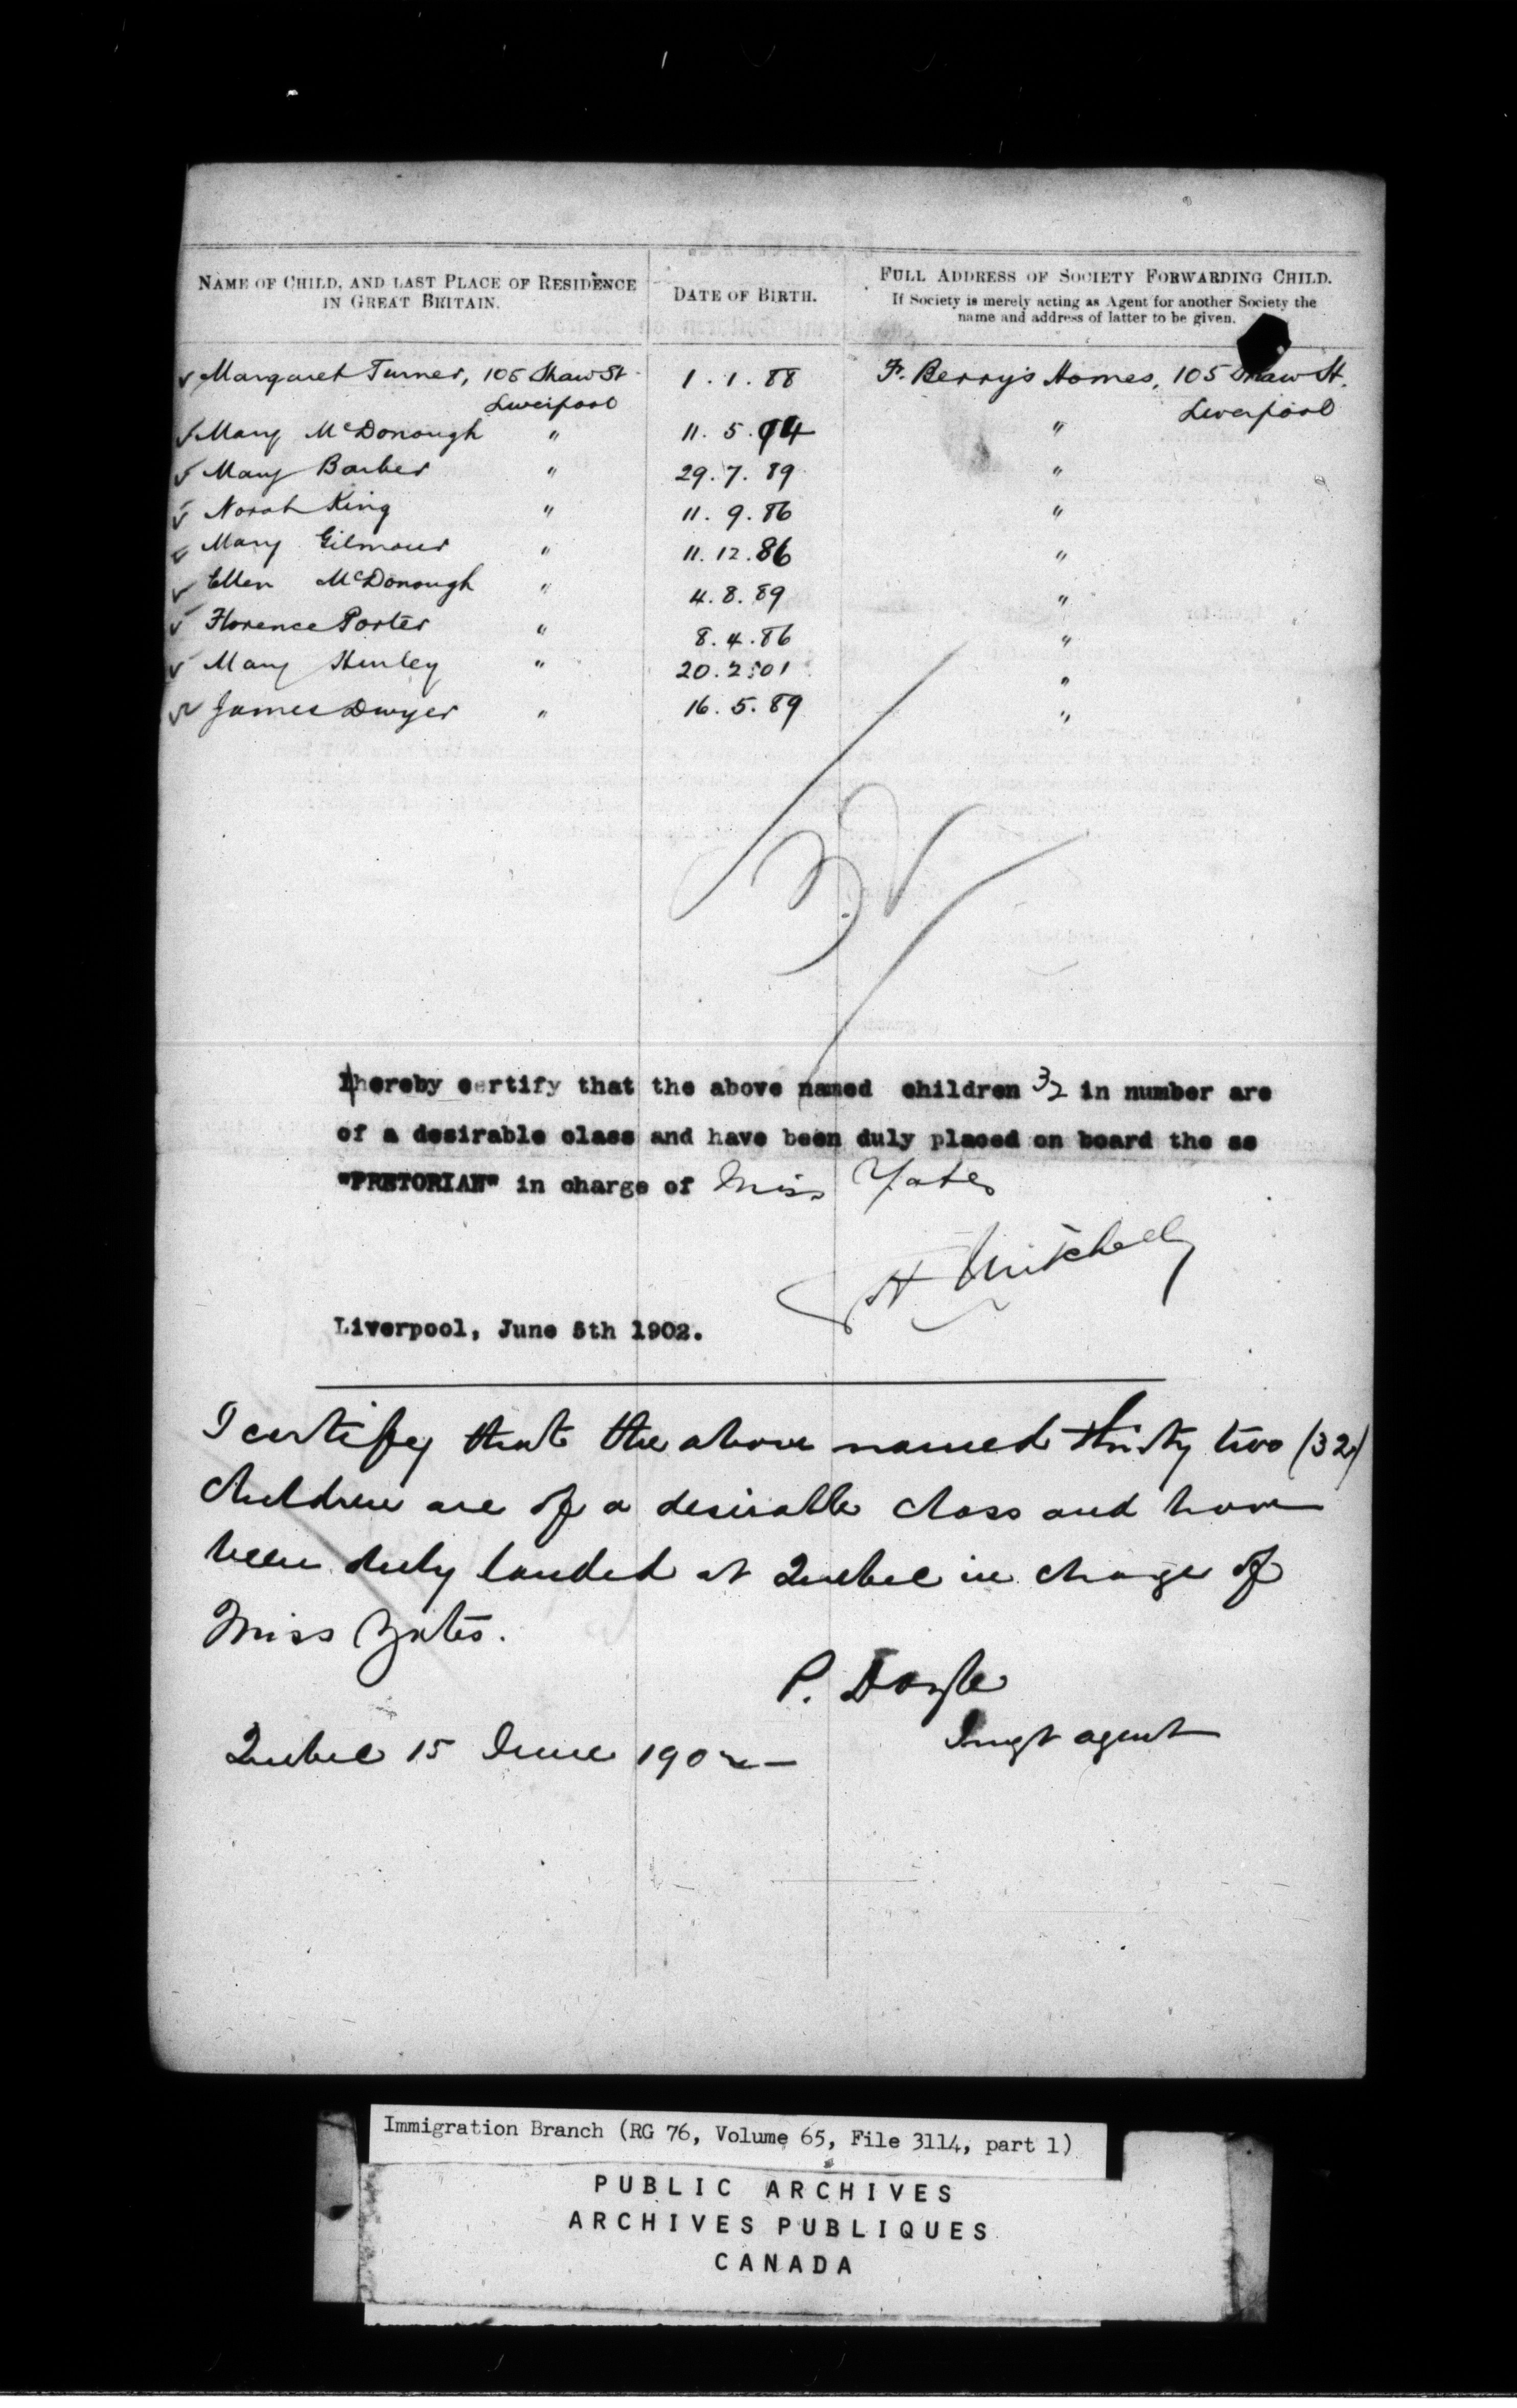 NAME OF CHILD, AND LAST PLACE OF RESIDENCE IN GREAT BRITAIN.
DATE OF BIRTH.
FULL ADDRESS OF SOCIETY FORWARDING CHILD.
If Society is merely acting as Agent for another Society the
name and address of latter to be given.
✓ Margaret Turner, 105 Shaw St 1.1.88 Fr. Berry's Homes, 105 Shaw St.
Liverpool Liverpool
✓ Mary McDonough " 11.5.94 "
✓ Mary Barber " 29.7.89 "
✓ Norah King " 11.9.86 "
✓ Mary Gilmour " 11.12.86 "
✓ Ellen McDonough " 4.8.89 "
✓ Florence Porter " 8.4.86 "
✓ Mary " 20.2.01 "
✓ James Dwyer " 16.5.89 "
32
I hereby certify that the above named children 32 in number are
of a desirable class and have been duly placed on board the ss
"PRETORIAN" in charge of Miss Yates
Mitchell
Liverpool, June 5th 1902.
I certify that the above named thirty two (32)
children are of a desirable class and have
been duly landed at Quebec in charge of
Miss Yates.
P. Doyle
Imgt agent
Quebec 15 June 1902
Immigration Branch (RG 76, Volume 65, File 3114, part 1)
PUBLIC ARCHIVES
ARCHIVES PUBLIQUES
CANADA